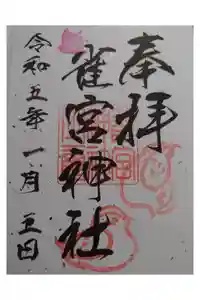 奉拝
雀宮神社
令和五年一月五日